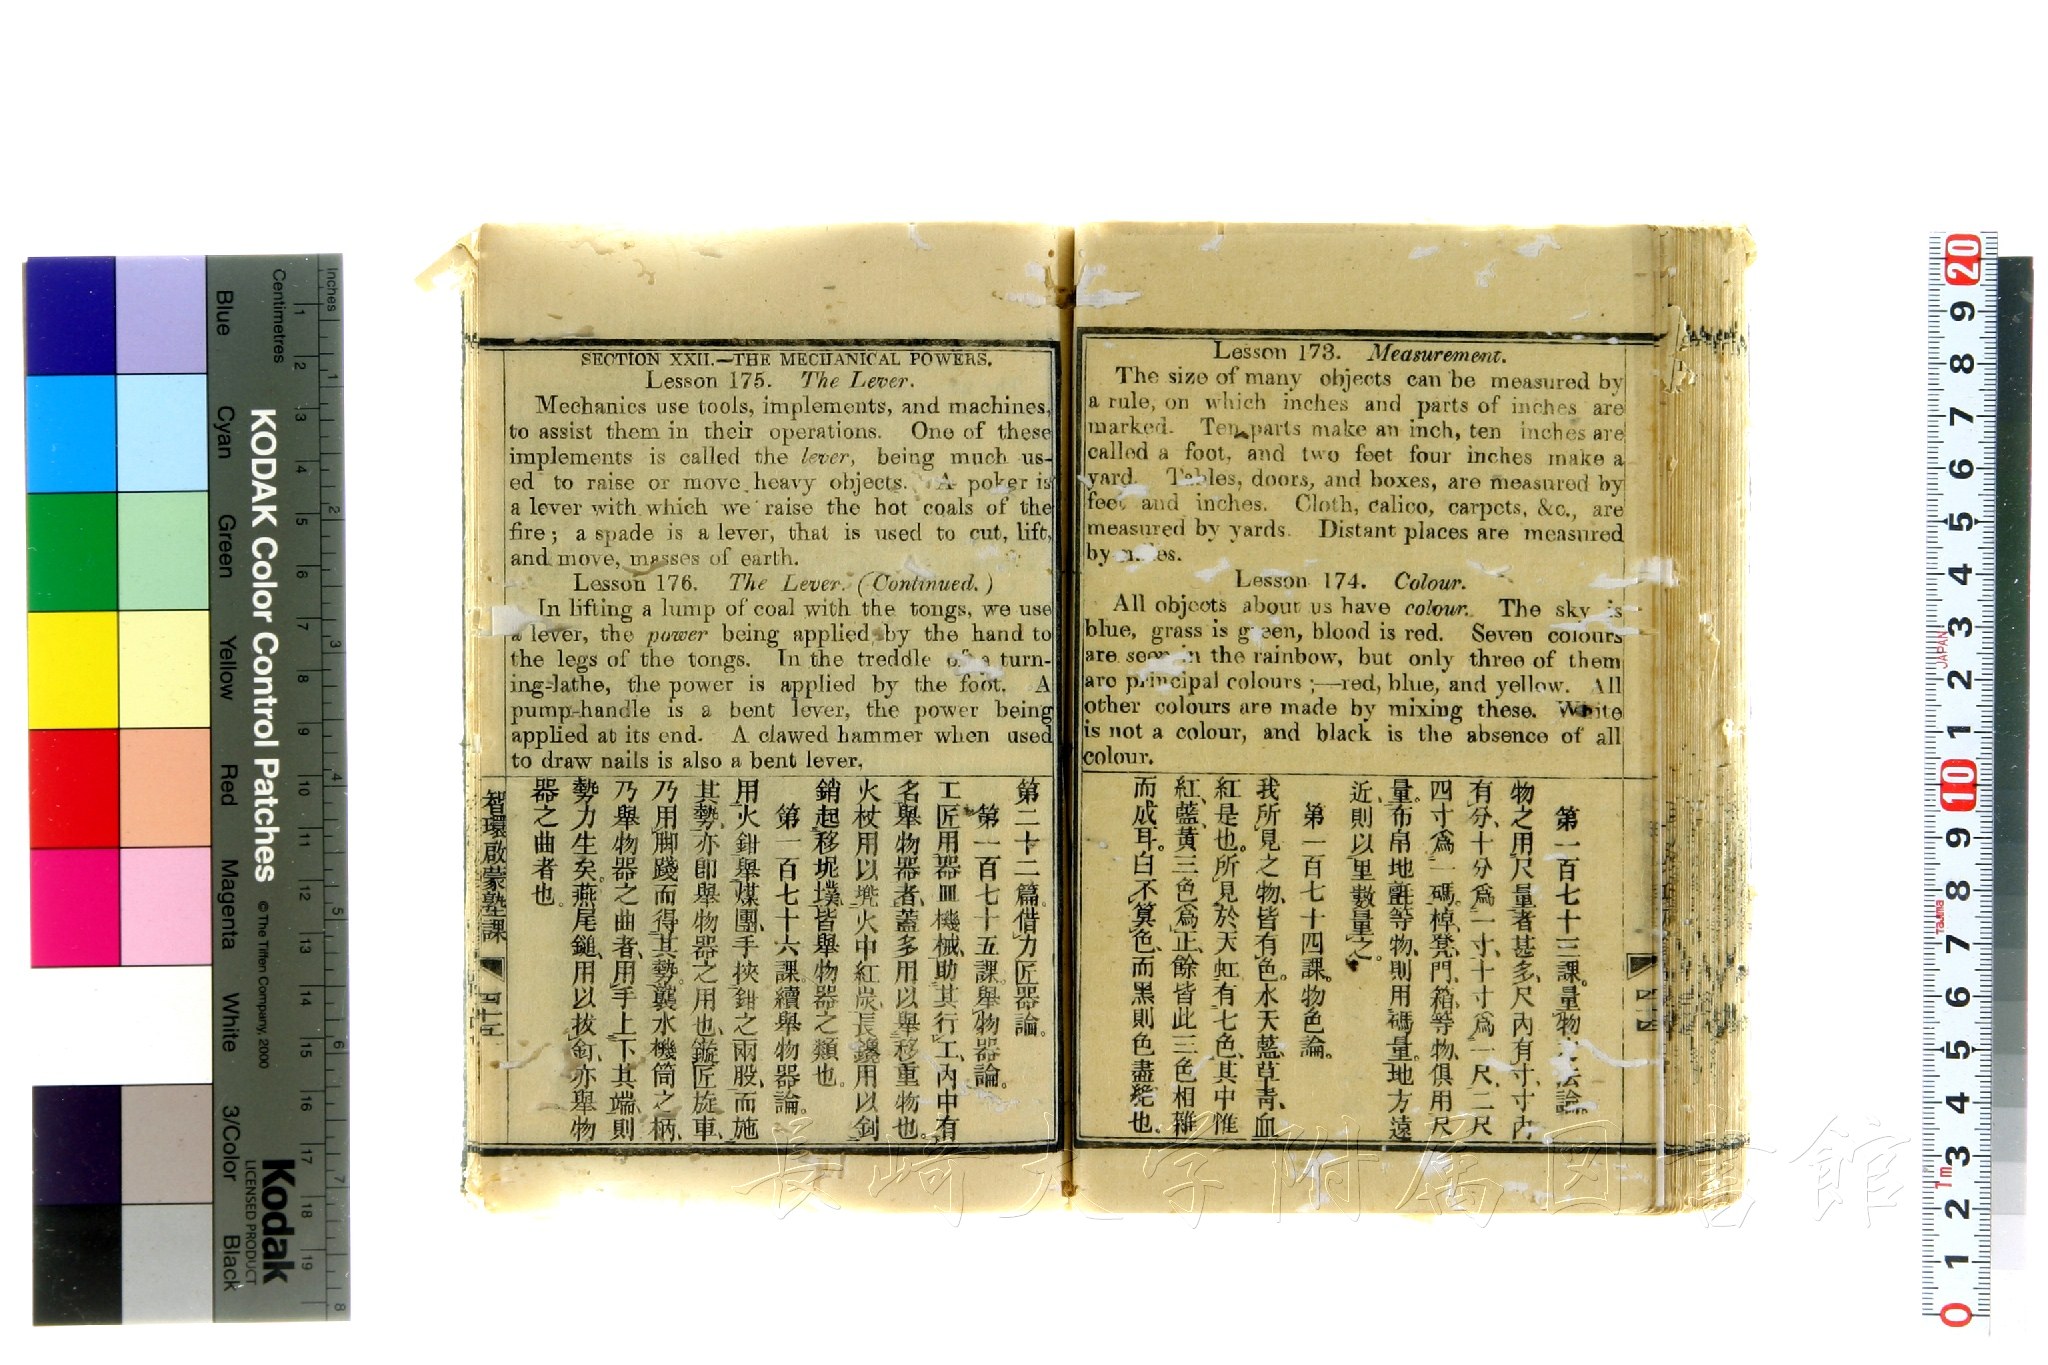 Lesson 173. Measurement.
The size of many objects can be measured by
a rule, on which inches and parts of inches are
marked. Ten parts make an inch, ten inches are
called a foot, and two feet four inches make a
yard. Tables, doors, and boxes, are measured by
feet and inches. Cloth, calico, carpets, &c., are
measured by yards. Distant places are measured
by miles.
Lesson 174. Colour.
All objects about us have colour. The sky is
blue, grass is green, blood is red. Seven colours
are seen in the rainbow, but only three of them
are principal colours ;—red, blue, and yellow. All
other colours are made by mixing these. White
is not a colour, and black is the absence of all
colour.
第一百七十三課。量物法論。
物之用尺量者甚多、尺內有寸、寸內
有分、十分爲一寸、十寸爲一尺、二尺
四寸爲一碼。棹、凳、門、箱、等物、俱用尺
量。布帛地氈等物、則用碼量。地方遠
近、則以里數量之。
第一百七十四課。物色論。
我所見之物、皆有色。水天藍、草青、血
紅是也。所見於天虹有七色、其中惟
紅、藍、黃、三色爲正、餘皆此三色相雜
而成耳。白不算色、而黑則色盡絕也。
四十四
SECTION XXII.—THE MECHANICAL POWERS.
Lesson 175. The Lever.
Mechanics use tools, implements, and machines,
to assist them in their operations. One of these
implements is called the lever, being much us-
ed to raise or move heavy objects. A poker is
a lever with which we raise the hot coals of the
fire ; a spade is a lever, that is used to cut, lift,
and move, masses of earth.
Lesson 176. The Lever. (Continued.)
In lifting a lump of coal with the tongs, we use
a lever, the power being applied by the hand to
the legs of the tongs. In the treddle of a turn-
ing-lathe, the power is applied by the foot. A
pump-handle is a bent lever, the power being
applied at its end. A clawed hammer when used
to draw nails is also a bent lever.
第二十二篇。借力匠器論。
第一百七十五課。舉物器論。
工匠用器皿機械、助其行工、內中有
名舉物器者、蓋多用以舉移重物也。
火杖用以火中紅炭、長鑱用以剑
銷起移坭墣、皆舉物器之類也。
第一百七十六課。續舉物器論。
用火鉗舉煤團、手挾鉗之兩股、而施
其勢、亦卽舉物器之用也。鏇匠旋車、
乃用脚踐而得其勢。水機筒之柄、
乃舉物器之曲者、用手上下其端、則
勢力生矣。燕尾鎚、用以拔釘、亦舉物
器之曲者也。
智環啟蒙塾課
四十五
KODAK Color Control Patches
© The Tiffen Company, 2000
Kodak
LICENSED PRODUCT
Inches
Centimetres
Blue
Cyan
Green
Yellow
Red
Magenta
White
3/Color
Black
1 2 3 4 5 6 7 8 9 10 11 12 13 14 15 16 17 18 19
1 2 3 4 5 6 7 8
20 9 8 7 6 5 4 3 2 1 10 9 8 7 6 5 4 3 2 1 0
JAPAN
Tajima
1m
長崎大学附属図書館